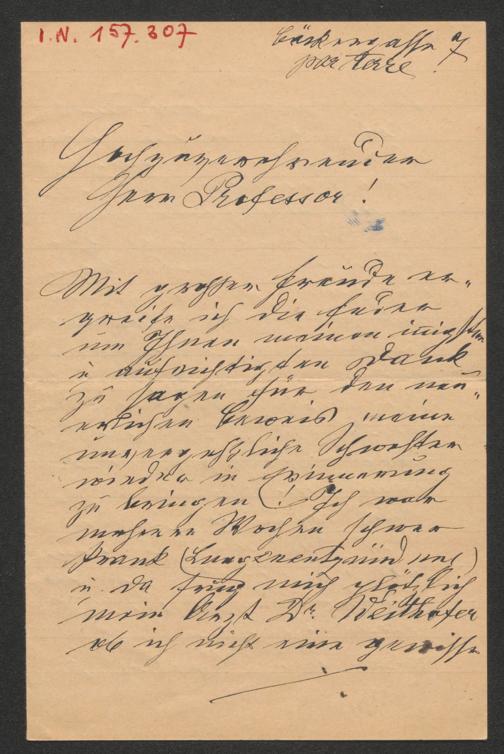 I.N. 157.307
Bäckergasse 7
parterre.
Hochzuverehrender
Herr Professor!
Mit großer Freude er-
greife ich die Feder
um Ihnen meinen innigsten
u aufrichtigsten Dank
zu sagen für den neu-
erlichen Beweis meine
unvergeßliche Schwester
wieder in Erinnerung
zu bringen! Ich war
mehrere Wochen schwer
krank (Lungenentzündung)
u da frug mich plötzlich
mein Arzt Dr. Weithofer
ob ich nicht eine gewisse